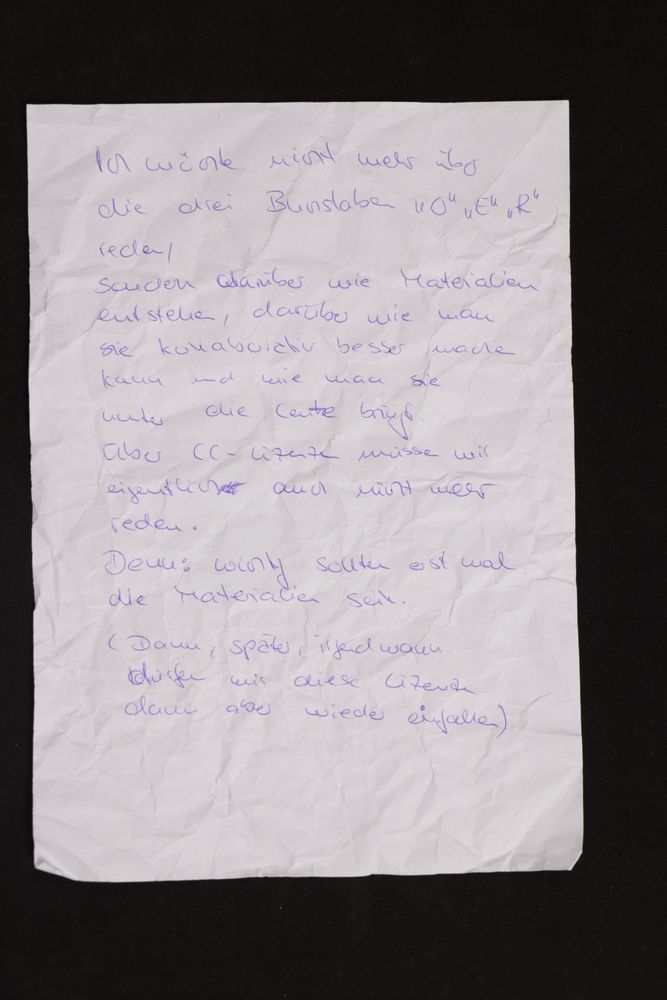 Ich würde nicht mehr über
die drei Buchstaben „O“ „E“ „R“
reden,
sondern darüber wie Materialien
entstehen, darüber wie man
sie kollaborativ besser machen
kann und wie man sie
unter die Leute bringt.
Über CC-Lizenzen müssen wir
eigentlich auch nicht mehr
reden.
Denn: wichtig sollten erst mal
die Materialien sein.
(Dann, später, irgendwann
dürfen mir diese Lizenzen
dann aber wieder einfallen)